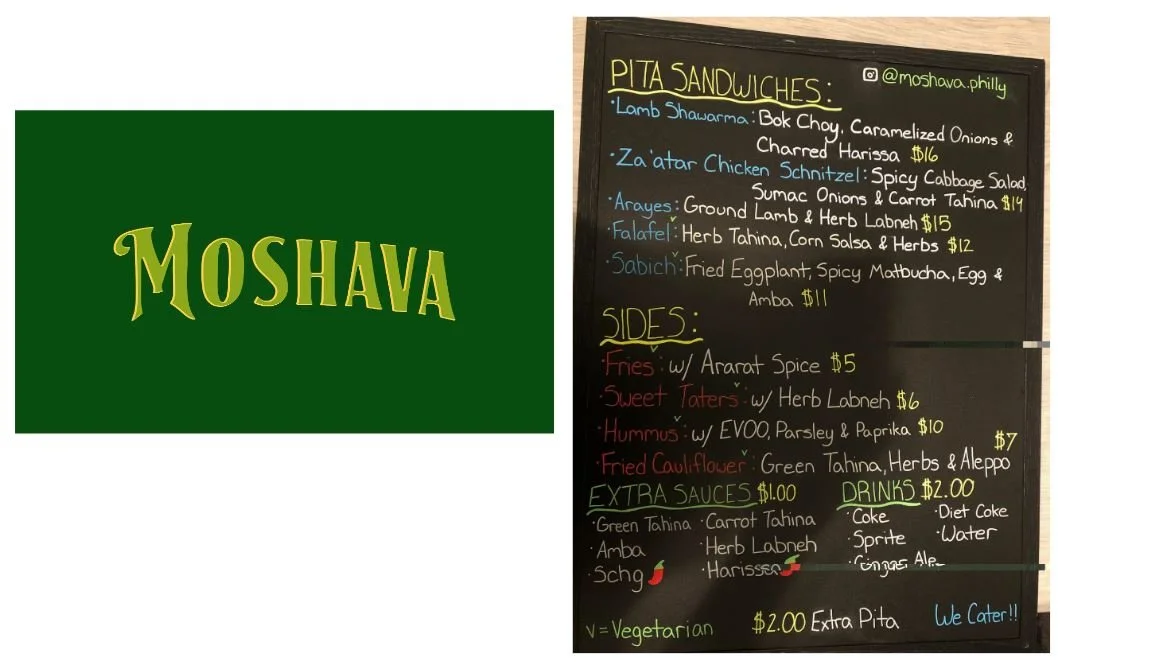 MOSHAVA
PITA SANDWICHES:
@moshava.philly
•Lamb Shawarma: Bok Choy, Caramelized Onions &
Charred Harissa $16
•Za'atar Chicken Schnitzel: Spicy Cabbage Salad,
Sumac Onions & Carrot Tahina $14
•Arayes: Ground Lamb & Herb Labneh $15
•Falafel v: Herb Tahina, Corn Salsa & Herbs $12
•Sabich v: Fried Eggplant, Spicy Matbucha, Egg &
Amba $11
SIDES:
•Fries v: w/ Ararat Spice $5
•Sweet Taters v: w/ Herb Labneh $6
•Hummus v: w/ EVOO, Parsley & Paprika $10
•Fried Cauliflower v: Green Tahina, Herbs & Aleppo $7
EXTRA SAUCES $1.00
•Green Tahina •Carrot Tahina
•Amba •Herb Labneh
•Schg •Harissa
DRINKS $2.00
•Coke •Diet Coke
•Sprite •Water
•Ginger Ale
v = Vegetarian
$2.00 Extra Pita
We Cater!!